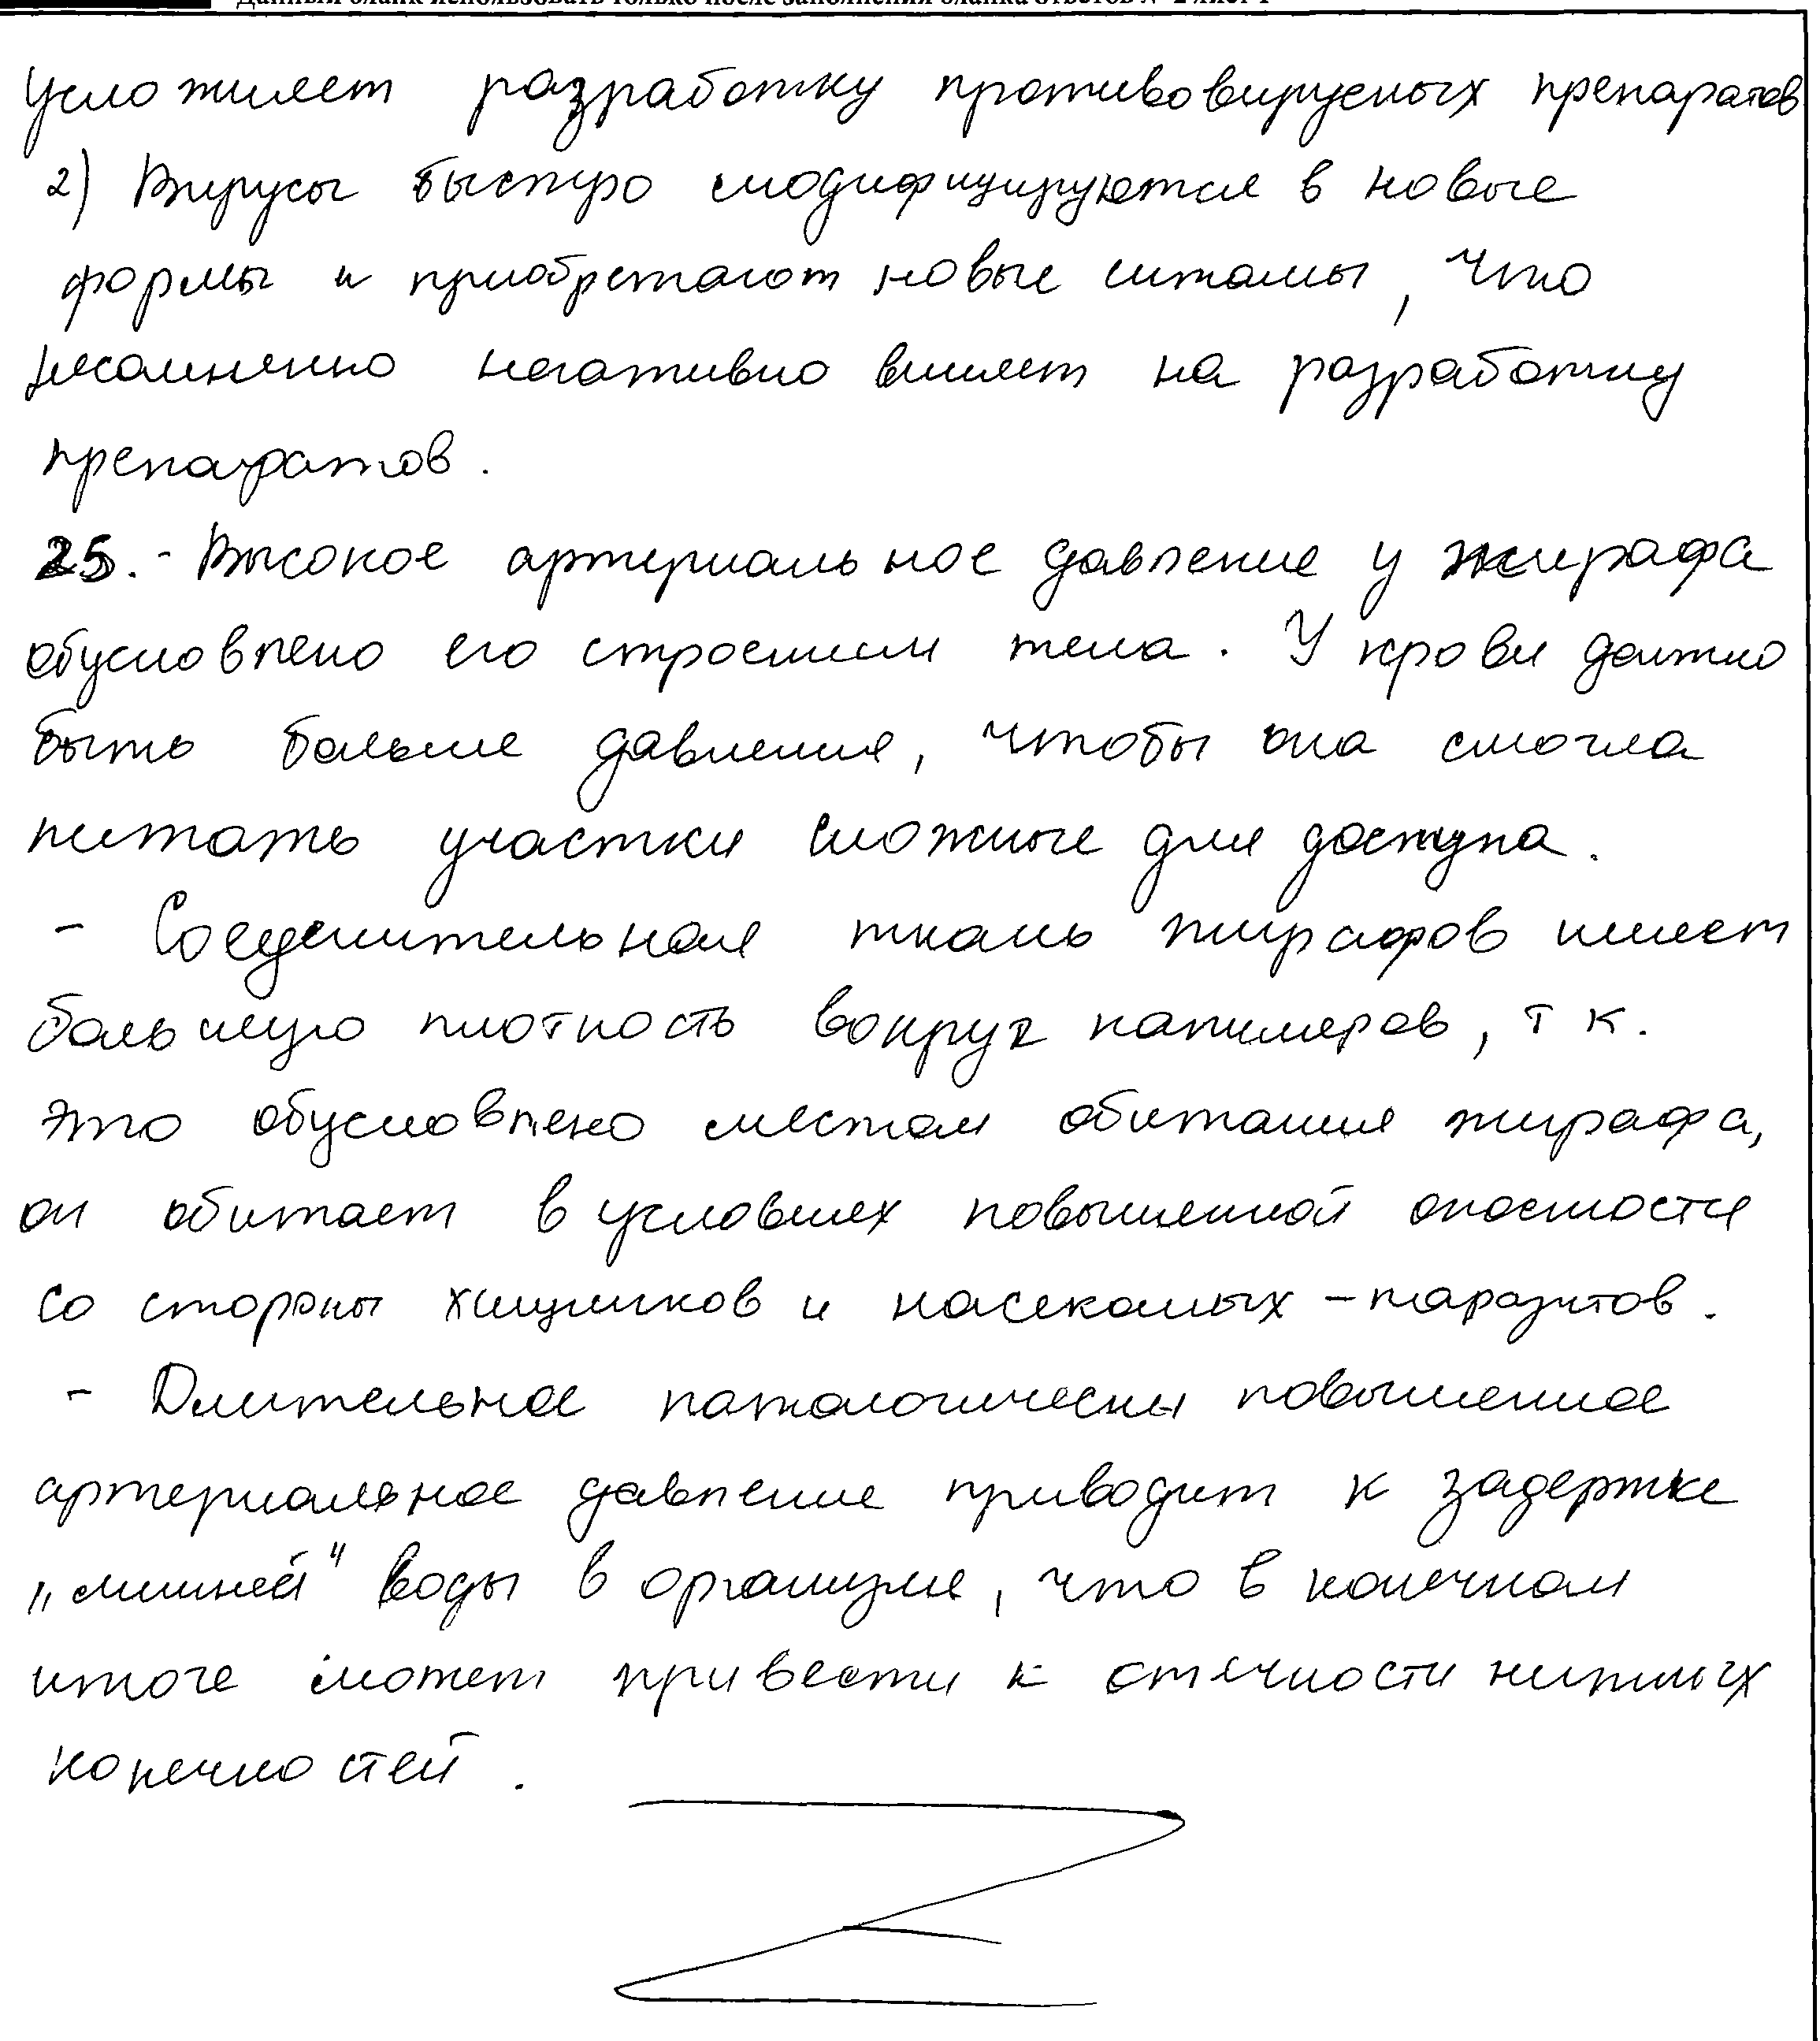 Данный бланк использовать только после заполнения бланка ответов № 2 лист 1
усложняет разработку противовирусных препаратов
2) Вирусы быстро модифицируются в новые
формы и приобретают новые штамы, что
несомненно негативно влияет на разработку
препаратов.
25. - Высокое артериальное давление у жирафа
обусловлено его строением тела. У крови должно
быть больше давления, чтобы она смогла
питать участки сложные для доступа.
- Соединительная ткань жирафов имеет
большую плотность вокруг капилляров, т к.
это обусловлено местом обитания жирафа,
он обитает в условиях повышенной опасности
со стороны хищников и насекомых - паразитов.
- Длительное патологически повышенное
артериальное давление приводит к задержке
„лишней" воды в организме, что в конечном
итоге может привести к отечности нижних
конечностей.